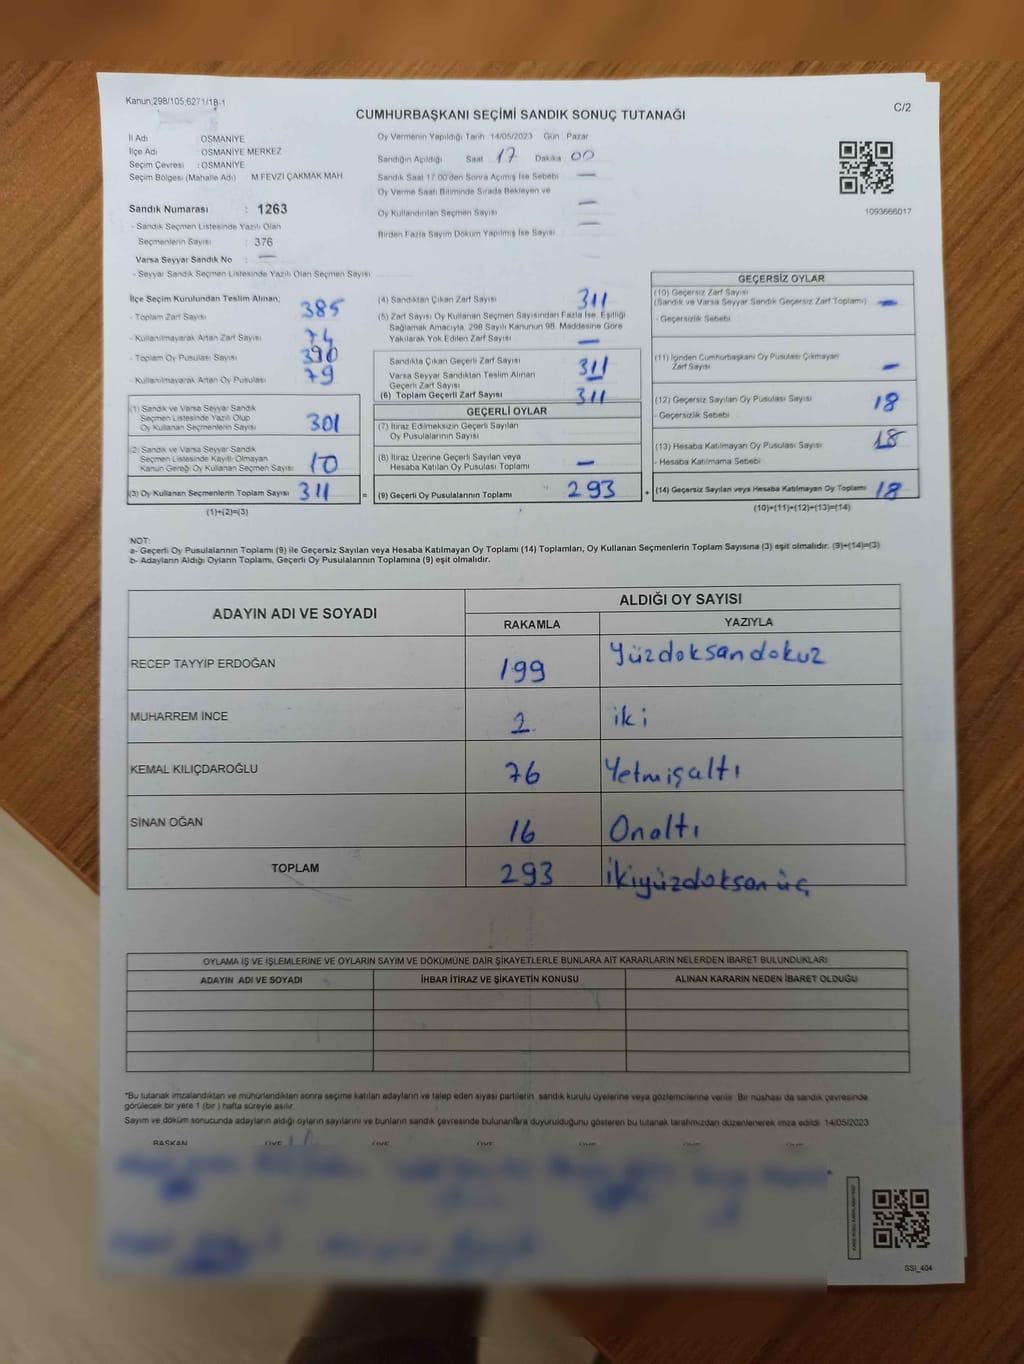 Kanun;298/105;6271/18-1
C/2
CUMHURBAŞKANI SEÇİMİ SANDIK SONUÇ TUTANAĞI
İl Adı OSMANİYE
İlçe Adı OSMANİYE MERKEZ
Seçim Çevresi : OSMANİYE
Seçim Bölgesi (Mahalle Adı) M.FEVZİ ÇAKMAK MAH.
Sandık Numarası : 1263
- Sandık Seçmen Listesinde Yazılı Olan
Seçmenlerin Sayısı : 376
Varsa Seyyar Sandık No : —
- Seyyar Sandık Seçmen Listesinde Yazılı Olan Seçmen Sayısı
Oy Vermenin Yapıldığı Tarih 14/05/2023 Gün Pazar
Sandığın Açıldığı Saat 17 Dakika 00
Sandık Saat 17:00'den Sonra Açılmış İse Sebebi —
Oy Verme Saati Bitiminde Sırada Bekleyen ve
Oy Kullandırılan Seçmen Sayısı —
Birden Fazla Sayım Döküm Yapılmış İse Sayısı —
1093666017
İlçe Seçim Kurulundan Teslim Alınan;
- Toplam Zarf Sayısı 385
- Kullanılmayarak Artan Zarf Sayısı 74
- Toplam Oy Pusulası Sayısı 390
- Kullanılmayarak Artan Oy Pusulası 79
(1) Sandık ve Varsa Seyyar Sandık
Seçmen Listesinde Yazılı Olup
Oy Kullanan Seçmenlerin Sayısı 301
(2) Sandık ve Varsa Seyyar Sandık
Seçmen Listesinde Kayıtlı Olmayan
Kanun Gereği Oy Kullanan Seçmen Sayısı 10
(3) Oy Kullanan Seçmenlerin Toplam Sayısı 311 =
(1)+(2)=(3)
(4) Sandıktan Çıkan Zarf Sayısı 311
(5) Zarf Sayısı Oy Kullanan Seçmen Sayısından Fazla İse, Eşitliği
Sağlamak Amacıyla, 298 Sayılı Kanunun 98. Maddesine Göre
Yakılarak Yok Edilen Zarf Sayısı —
Sandıkta Çıkan Geçerli Zarf Sayısı 311
Varsa Seyyar Sandıktan Teslim Alınan
Geçerli Zarf Sayısı —
(6) Toplam Geçerli Zarf Sayısı 311
GEÇERLİ OYLAR
(7) İtiraz Edilmeksizin Geçerli Sayılan
Oy Pusulalarının Sayısı
(8) İtiraz Üzerine Geçerli Sayılan veya
Hesaba Katılan Oy Pusulası Toplamı —
(9) Geçerli Oy Pusulalarının Toplamı 293 +
GEÇERSİZ OYLAR
(10) Geçersiz Zarf Sayısı
(Sandık ve Varsa Seyyar Sandık Geçersiz Zarf Toplamı) —
- Geçersizlik Sebebi
(11) İçinden Cumhurbaşkanı Oy Pusulası Çıkmayan
Zarf Sayısı —
(12) Geçersiz Sayılan Oy Pusulası Sayısı 18
- Geçersizlik Sebebi
(13) Hesaba Katılmayan Oy Pusulası Sayısı 18
- Hesaba Katılmama Sebebi
(14) Geçersiz Sayılan veya Hesaba Katılmayan Oy Toplamı 18
(10)+(11)+(12)+(13)=(14)
NOT:
a- Geçerli Oy Pusulalarının Toplamı (9) ile Geçersiz Sayılan veya Hesaba Katılmayan Oy Toplamı (14) Toplamları, Oy Kullanan Seçmenlerin Toplam Sayısına (3) eşit olmalıdır. (9)+(14)=(3)
b- Adayların Aldığı Oyların Toplamı, Geçerli Oy Pusulalarının Toplamına (9) eşit olmalıdır.
ADAYIN ADI VE SOYADI
ALDIĞI OY SAYISI
RAKAMLA YAZIYLA
RECEP TAYYİP ERDOĞAN 199 Yüzdoksandokuz
MUHARREM İNCE 2 iki
KEMAL KILIÇDAROĞLU 76 Yetmişaltı
SİNAN OĞAN 16 Onaltı
TOPLAM 293 İkiyüzdoksanüç
OYLAMA İŞ VE İŞLEMLERİNE VE OYLARIN SAYIM VE DÖKÜMÜNE DAİR ŞİKAYETLERLE BUNLARA AİT KARARLARIN NELERDEN İBARET BULUNDUKLARI
ADAYIN ADI VE SOYADI İHBAR İTİRAZ VE ŞİKAYETİN KONUSU ALINAN KARARIN NEDEN İBARET OLDUĞU
"Bu tutanak imzalandıktan ve mühürlendikten sonra seçime katılan adayların ve talep eden siyasi partilerin sandık kurulu üyelerine veya gözlemcilerine verilir. Bir nüshası da sandık çevresinde
görülecek bir yere 1 (bir ) hafta süreyle asılır.
Sayım ve döküm sonucunda adayların aldığı oyların sayılarını ve bunların sandık çevresinde bulunanlara duyurulduğunu gösteren bu tutanak tarafımızdan düzenlenerek imza edildi. 14/05/2023
BAŞKAN ÜYE ÜYE ÜYE ÜYE ÜYE ÜYE
SSI_404